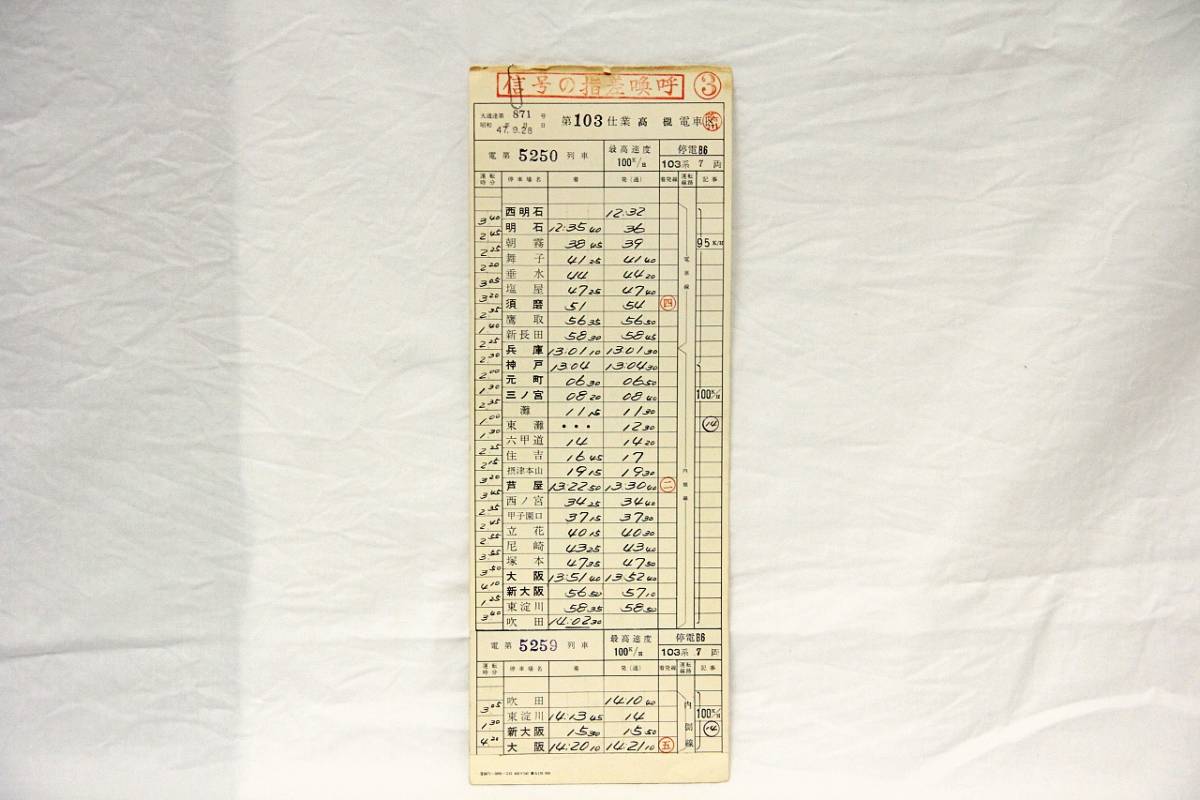 信号の指差喚呼 ③
大運達第 871 号
昭和 年 月 日 47.9.28
第103仕業 高 槻 電車区
電第 5250 列車 最高速度 100K/H 停電B6 103系 7 両
運転時分 停車場名 着 発(通) 着発線 運転線路 記事
西明石 12:32
3 40
明石 12:35 40 36
2 45
朝霧 38 45 39 95K/H
2 25
舞子 41 25 41 40
2 20
垂水 44 44 20
3 05
塩屋 47 25 47 40
3 20
須磨 51 54 四
2 35
鷹取 56 35 56 50
1 40
新長田 58 30 58 45
2 25
兵庫 13:01 10 13:01 30
2 30
神戸 13:04 13:04 30
2 00
元町 06 30 06 50
1 30
三ノ宮 08 20 08 40 100K/H
2 35
灘 11 15 11 30
1 00
東灘 ・・・ 12 30 14
1 30
六甲道 14 14 20
2 25
住吉 16 45 17
2 15
摂津本山 19 15 19 30
3 20
芦屋 13:22 50 13:30 40 二
3 45
西ノ宮 34 25 34 40
2 35
甲子園口 37 15 37 30
2 45
立花 40 15 40 30
2 55
尼崎 43 25 43 40
3 55
塚本 47 35 47 50
3 50
大阪 13:51 40 13:52 40
4 10
新大阪 56 50 57 10
1 25
東淀川 58 35 58 50
3 40
吹田 14:02 30
電第 5259 列車 最高速度 100K/H 停電B6 103系 7 両
運転時分 停車場名 着 発(通) 着発線 運転線路 記事
吹田 14:10 40
3 05
東淀川 14:13 45 14 内側線 100K/H
1 30
新大阪 15 30 15 50 14
4 20
大阪 14:20 10 14:21 10 五